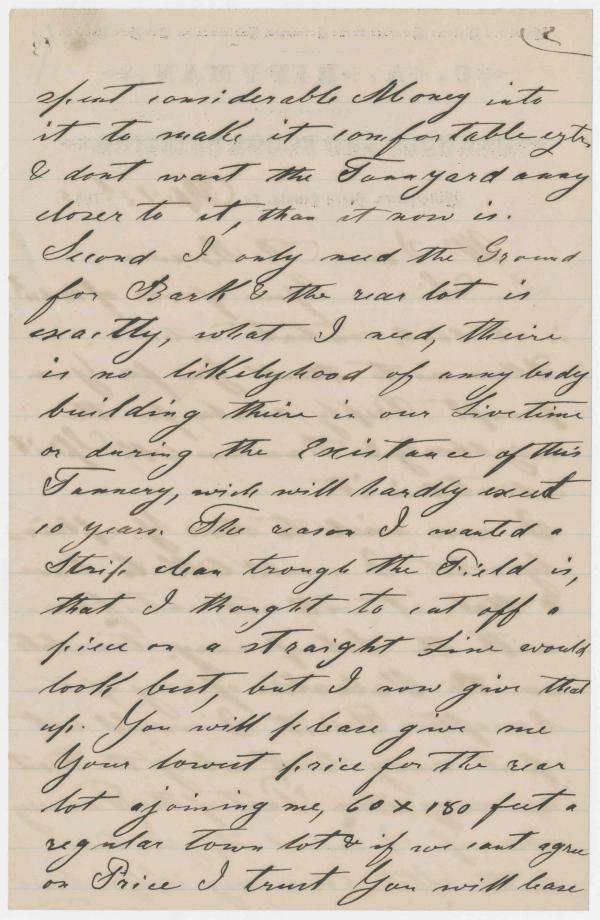 spent considerable Money into
it to make it comfortable extr
& dont want the Tannyard anny
closer to it, than it now is.
Second I only need the Ground
for Bark & the rear lot is
exactly, what I need, theire
is no likelyhood of anny body
building theire in our Livetime
or during the Existance of this
Tannery, wich will hardly exeet
10 years. The reason I wanted a
Strip clean trough the Field is,
that I thought to cut off a
piece on a straight Line would
look best, but I now give that
up. You will please give me
Your lowest price for the rear
lot ajoining me, 60 x 180 feet a
regular town lot & if we cant agree
on Price I trust You will lease